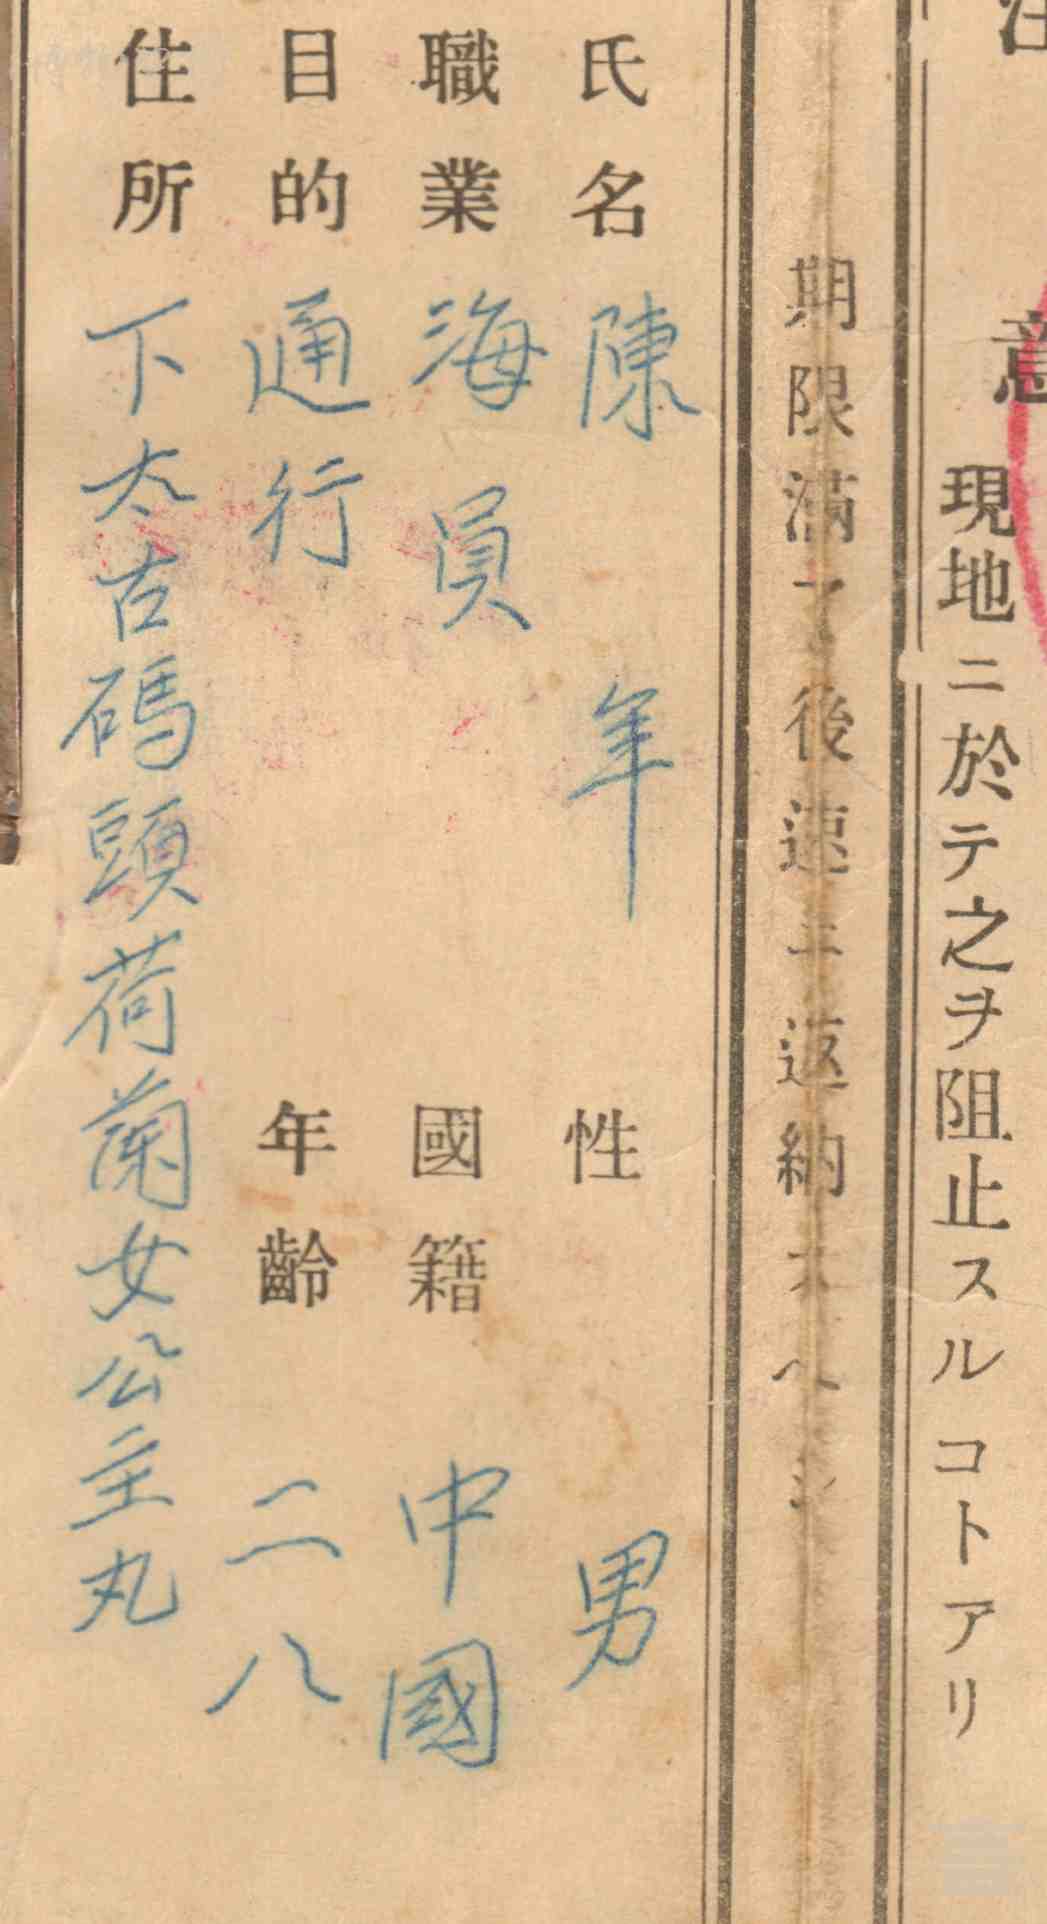 注意
現地ニ於テ之ヲ阻止スルコトアリ
期限滿了後速ニ返納スヘシ
氏名 陳年 性 男
職業 海員 國籍 中國
目的 通行 年齡 二八
住所 下太古碼頭荷蘭女公主丸